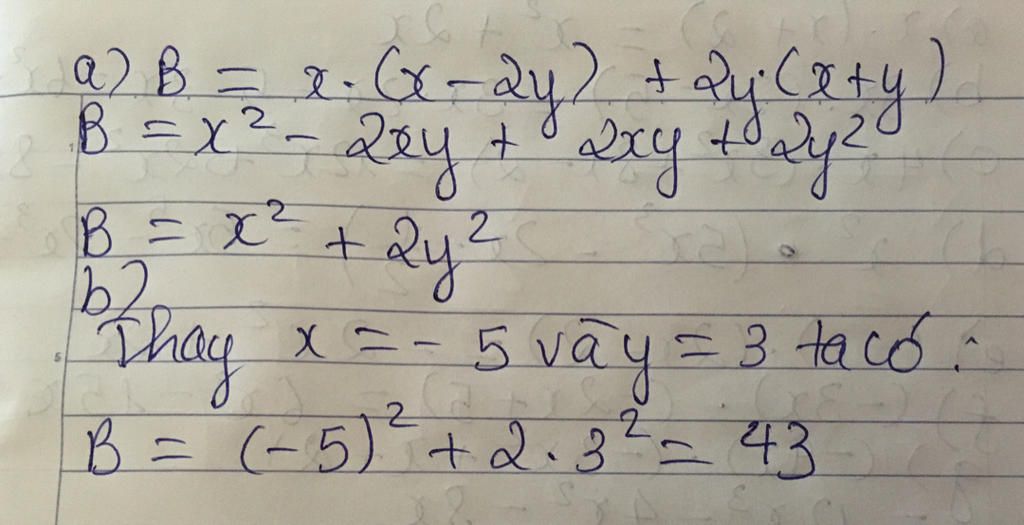 a) B = x·(x-2y) + 2y·(x+y)
B = x² - 2xy + 2xy + 2y²
B = x² + 2y²
b)
Thay x = -5 và y = 3 ta có :
B = (-5)² + 2·3² = 43